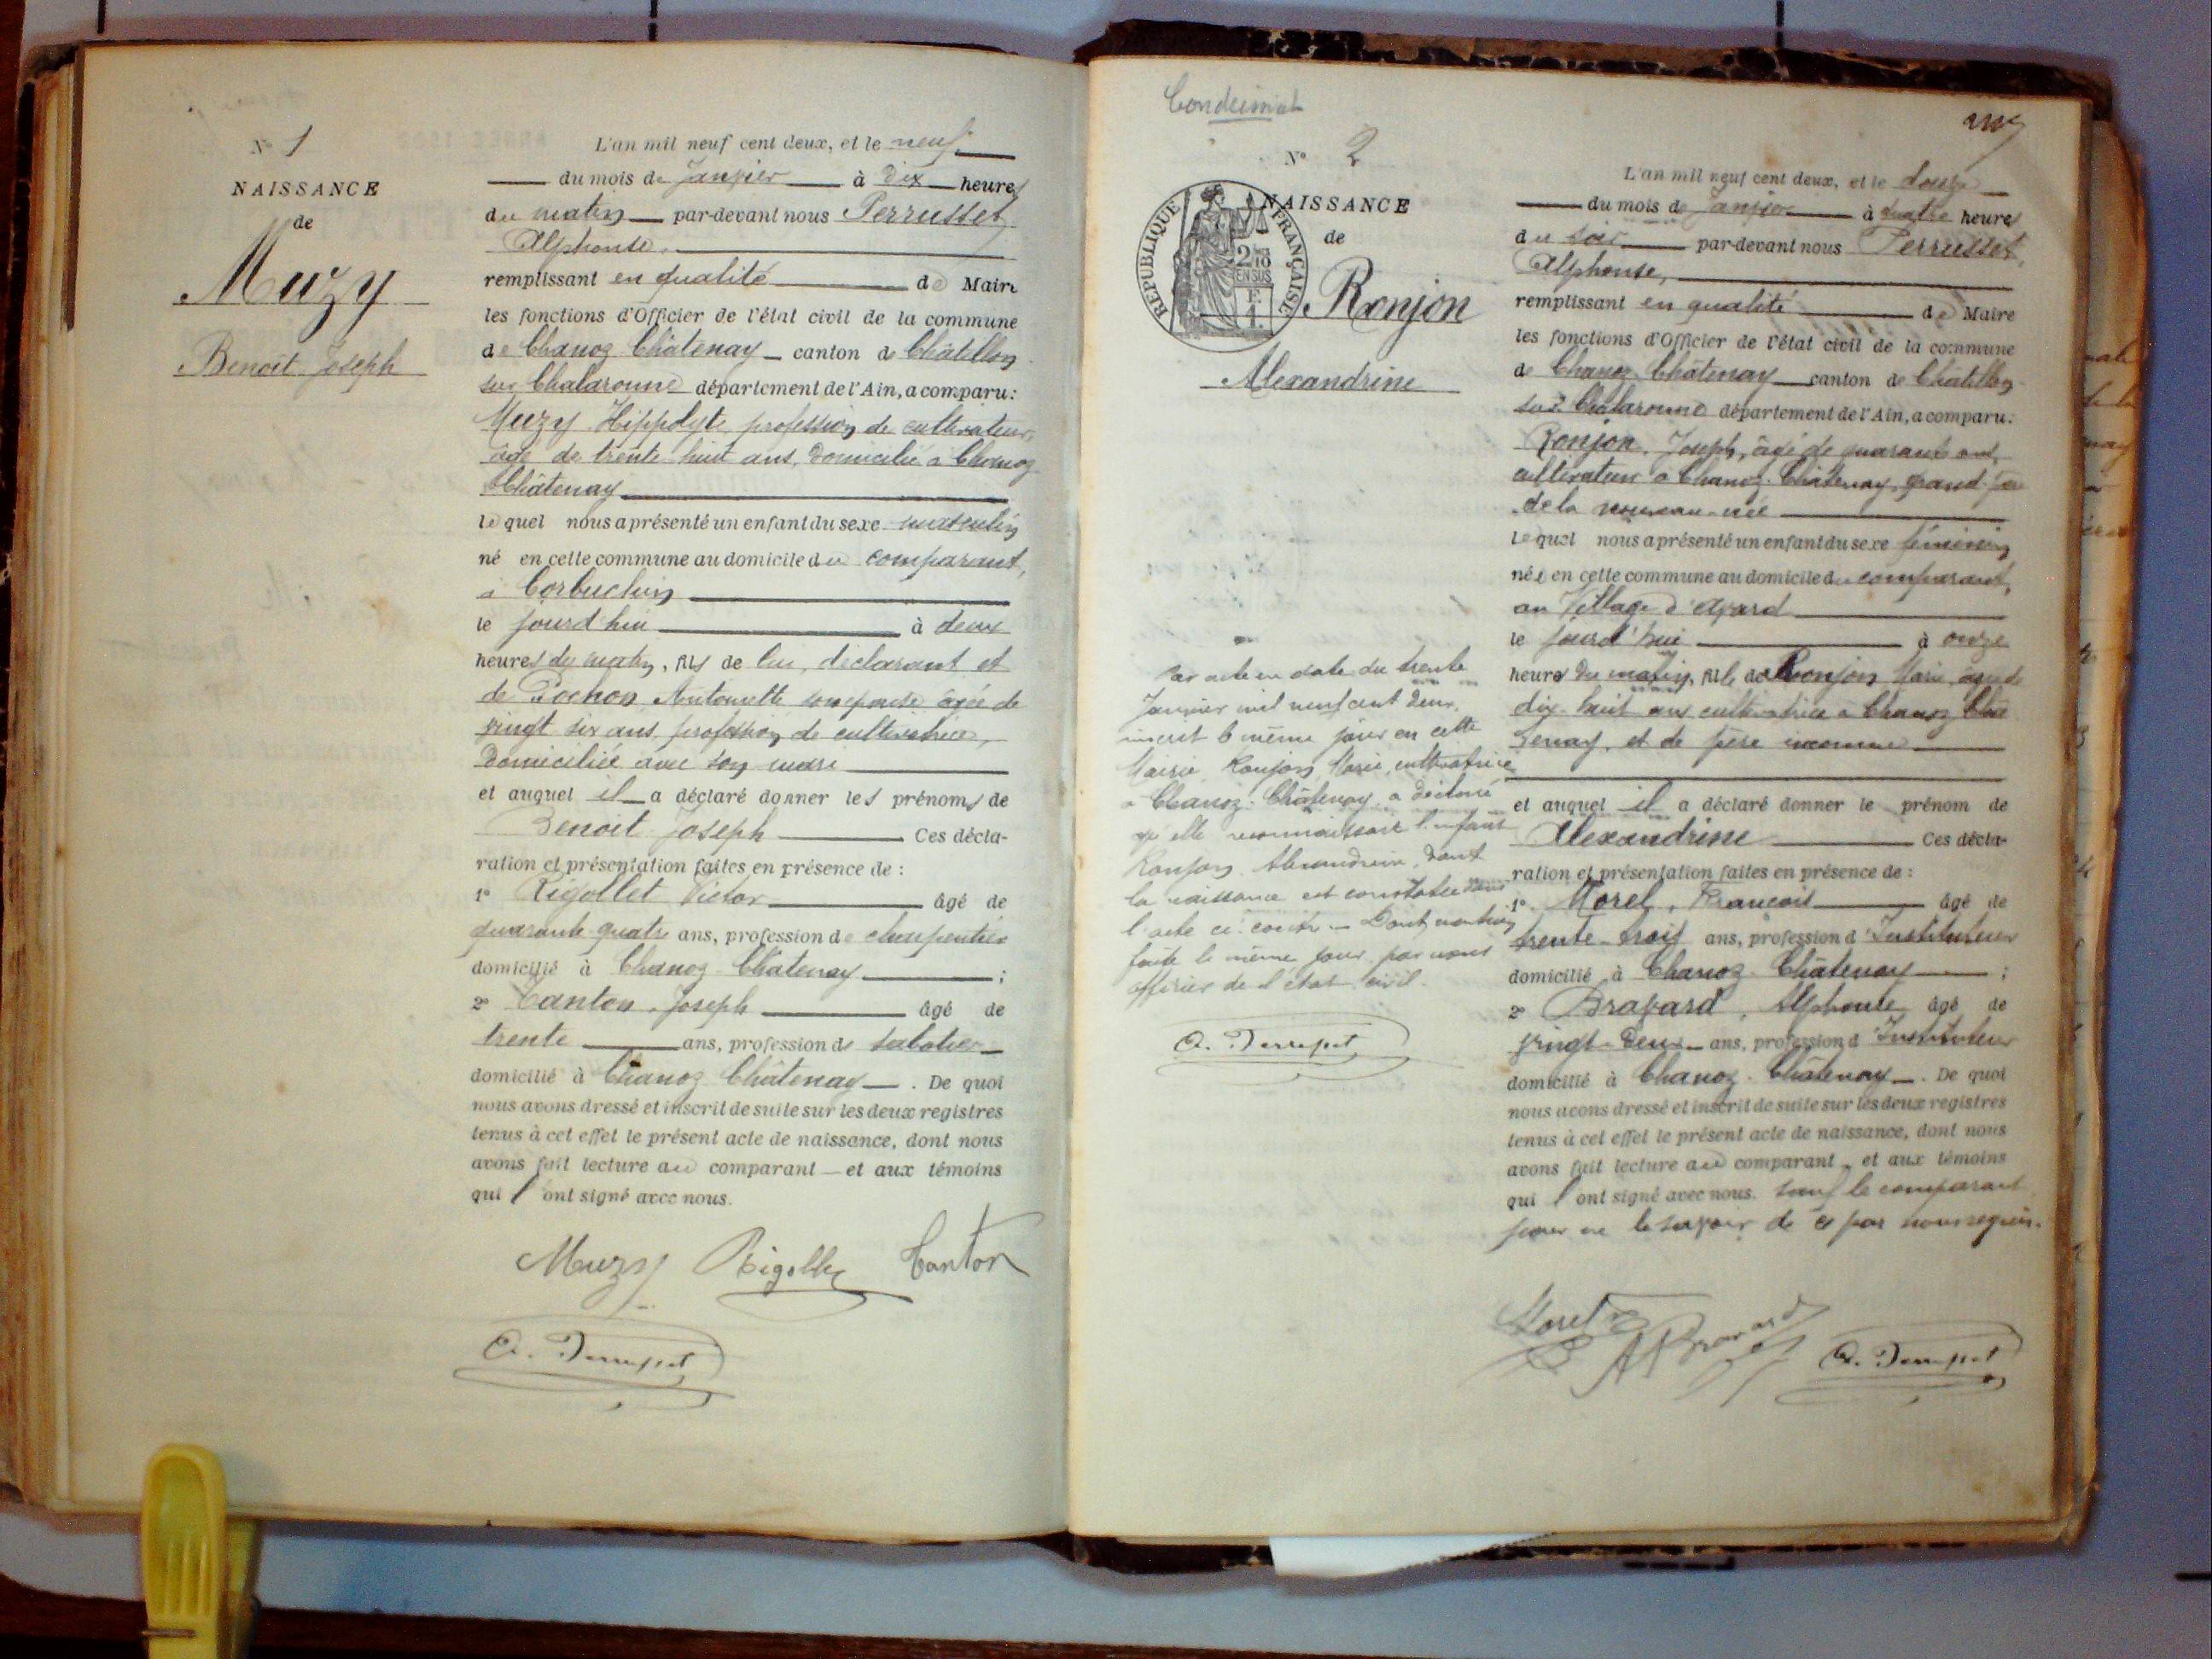 N° 1
NAISSANCE
de
Muzy
Benoit Joseph
L'an mil neuf cent deux, et le neuf
du mois de Janvier à dix heures
du matin par-devant nous Perrusset
Alphonse,
remplissant en qualité de Maire
les fonctions d'Officier de l'état civil de la commune
de Chanoz Châtenay canton de Châtillon
sur Chalaronne département de l'Ain, a comparu:
Muzy Hippolyte, profession de cultivateur,
âgé de trente huit ans, domicilié à Chanoz
Châtenay
lequel nous a présenté un enfant du sexe masculin
né en cette commune au domicile du comparant,
à Corbuchin
le jourd'hui à deux
heures du matin, fils de lui, déclarant et
de Pochon Antoinette son épouse âgée de
vingt six ans, profession de cultivatrice,
domiciliée avec son mari
et auquel il a déclaré donner les prénoms de
Benoit Joseph Ces décla-
ration et présentation faites en présence de :
1° Rigollet Victor âgé de
quarante-quatre ans, profession de charpentier
domicilié à Chanoz Châtenay ;
2° Canton, Joseph âgé de
trente ans, profession de sabotier
domicilié à Chanoz Châtenay . De quoi
nous avons dressé et inscrit de suite sur les deux registres
tenus à cet effet le présent acte de naissance, dont nous
avons fait lecture au comparant et aux témoins
qui ont signé avec nous.
Muzy Rigollet Canton
A. Perrusset
Condeimiat
N° 2
RÉPUBLIQUE FRANÇAISE
2/10
EN SUS
NAISSANCE
de
Ronjon
Alexandrine
Par acte en date du trente
Janvier mil neuf cent deux,
inscrit le même jour en cette
Mairie Ronjon Marie, cultivatrice
à Chanoz-Châtenay a déclaré
qu'elle reconnaissait l'enfant
Ronjon Alexandrine, dont
la naissance est constatée dans
l'acte ci-contre - Dont mention
faite le même jour par nous
officier de l'état civil.
A. Perrusset
L'an mil neuf cent deux, et le douze
du mois de Janvier à quatre heures
du soir par-devant nous Perrusset,
Alphonse,
remplissant en qualité de Maire
les fonctions d'Officier de l'état civil de la commune
de Chanoz Châtenay canton de Châtillon
sur Chalaronne département de l'Ain, a comparu:
Ronjon, Joseph, âgé de quarante ans,
cultivateur à Chanoz-Châtenay, grand-père
de la nouveau-née
lequel nous a présenté un enfant du sexe féminin
née en cette commune au domicile du comparant,
au Village d'
le jourd'hui à onze
heures du matin, fille de Ronjon Marie, âgée de
dix-huit ans cultivatrice à Chanoz Châ
tenay, et de père inconnu
et auquel il a déclaré donner le prénom de
Alexandrine Ces décla-
ration et présentation faites en présence de :
1° Morel, François âgé de
trente-trois ans, profession d'Instituteur
domicilié à Chanoz-Châtenay ;
2° Bravard, Alphonse âgé de
vingt-deux ans, profession d'Instituteur
domicilié à Chanoz-Châtenay . De quoi
nous avons dressé et inscrit de suite sur les deux registres
tenus à cet effet le présent acte de naissance, dont nous
avons fait lecture au comparant et aux témoins
qui ont signé avec nous. sauf le comparant
pour ne le savoir de ce par nous requis.
Morel ABravard A. Perrusset